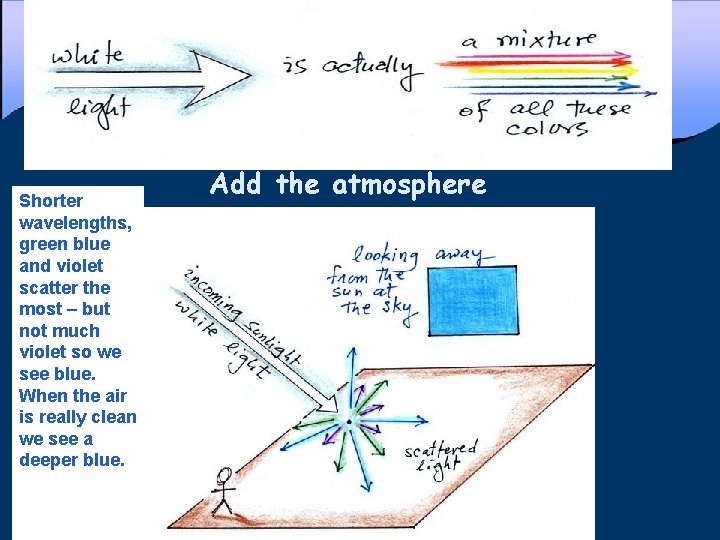 white
light
is actually
a mixture
of all these
colors
Add the atmosphere
Shorter
wavelengths,
green blue
and violet
scatter the
most – but
not much
violet so we
see blue.
When the air
is really clean
we see a
deeper blue.
incoming sunlight
white light
looking away
from the
sun at
the sky
scattered
light